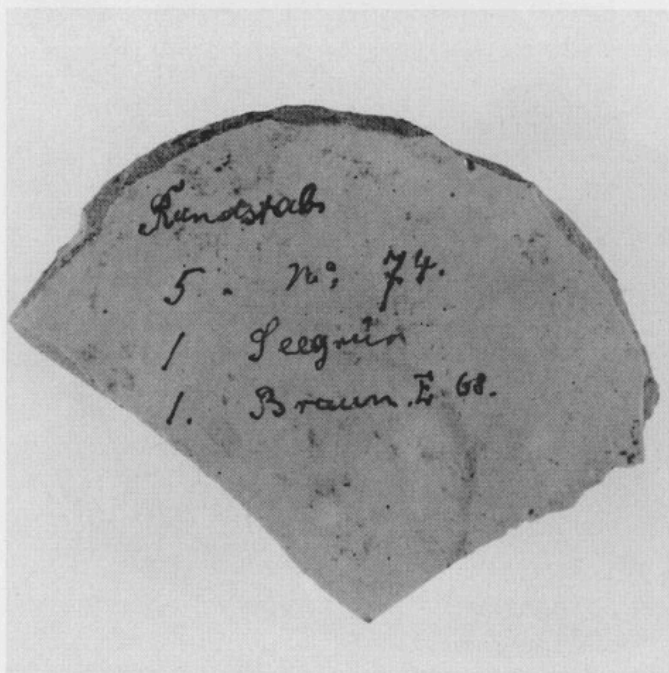 Rundstab
5. No. 74.
1 Seegrün
1. Braun. E. 68.